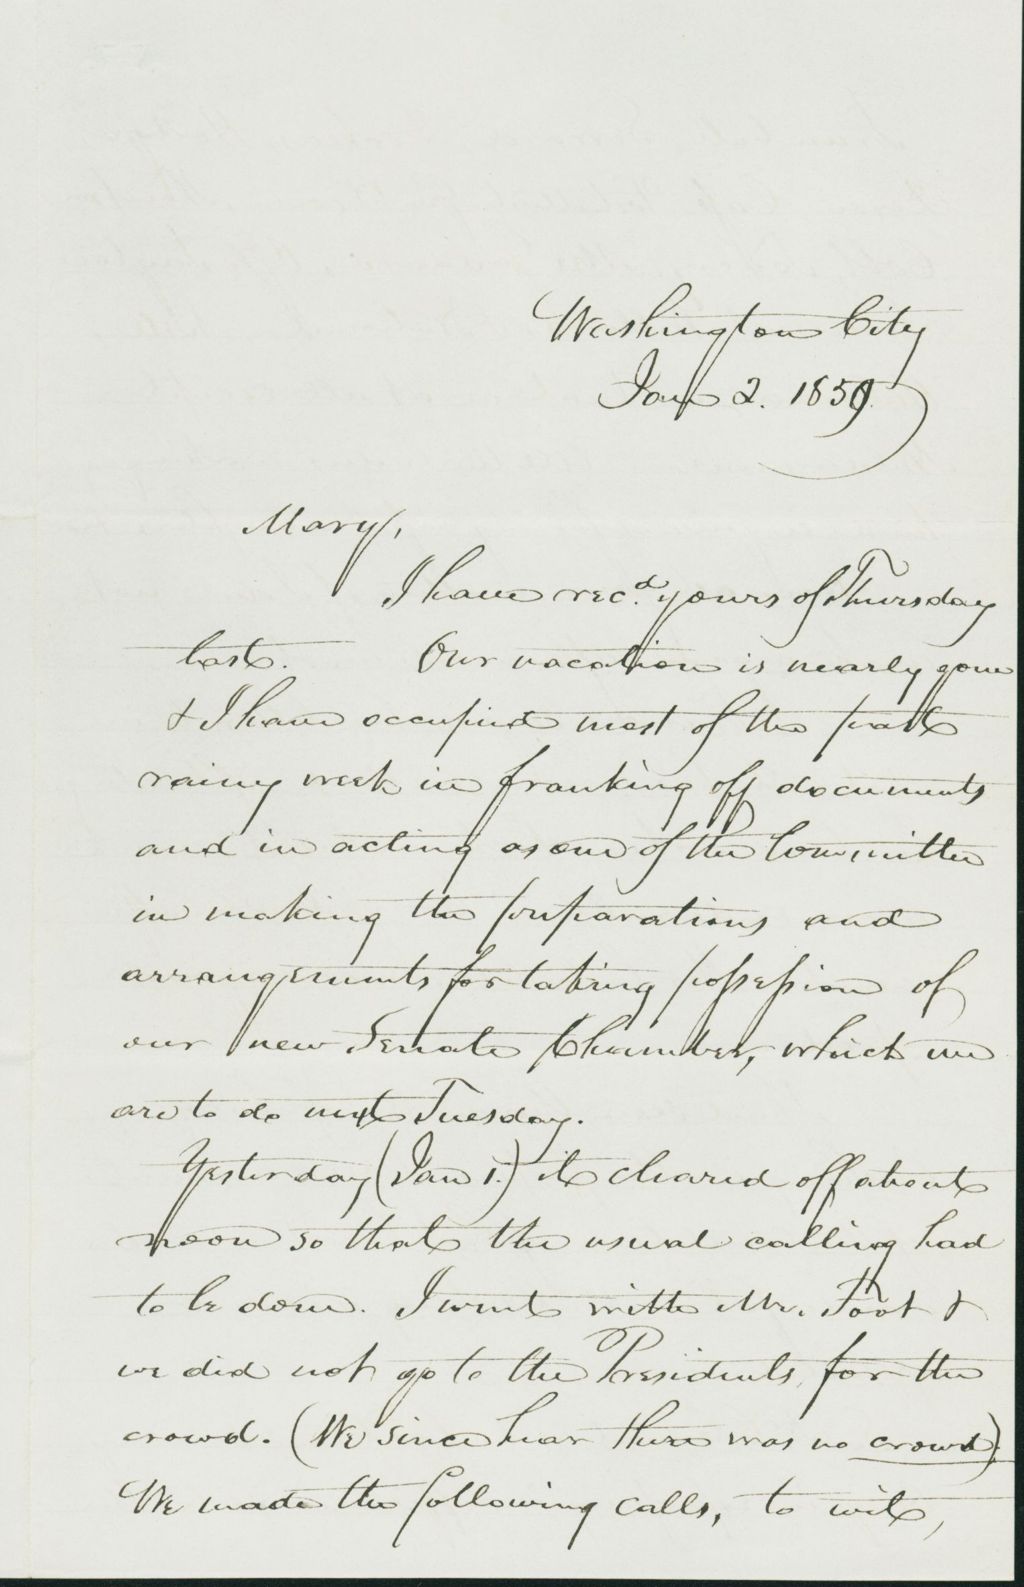 Washington City
Jan 2. 1859.
Mary,
I have recd. yours of Thursday
last. Our vacation is nearly gone
& I have occupied most of the past
rainy week in franking off documents
and in acting as one of the Committee
in making the preparations and
arrangements for taking possession of
our new Senate Chamber, which we
are to do next Tuesday.
Yesterday (Jan 1.) it cleared off about
noon so that the usual calling had
to be done. I went with Mr. Foot &
we did not go to the Presidents, for the
crowd. (We since hear there was no crowd).
We made the following calls, to wit,